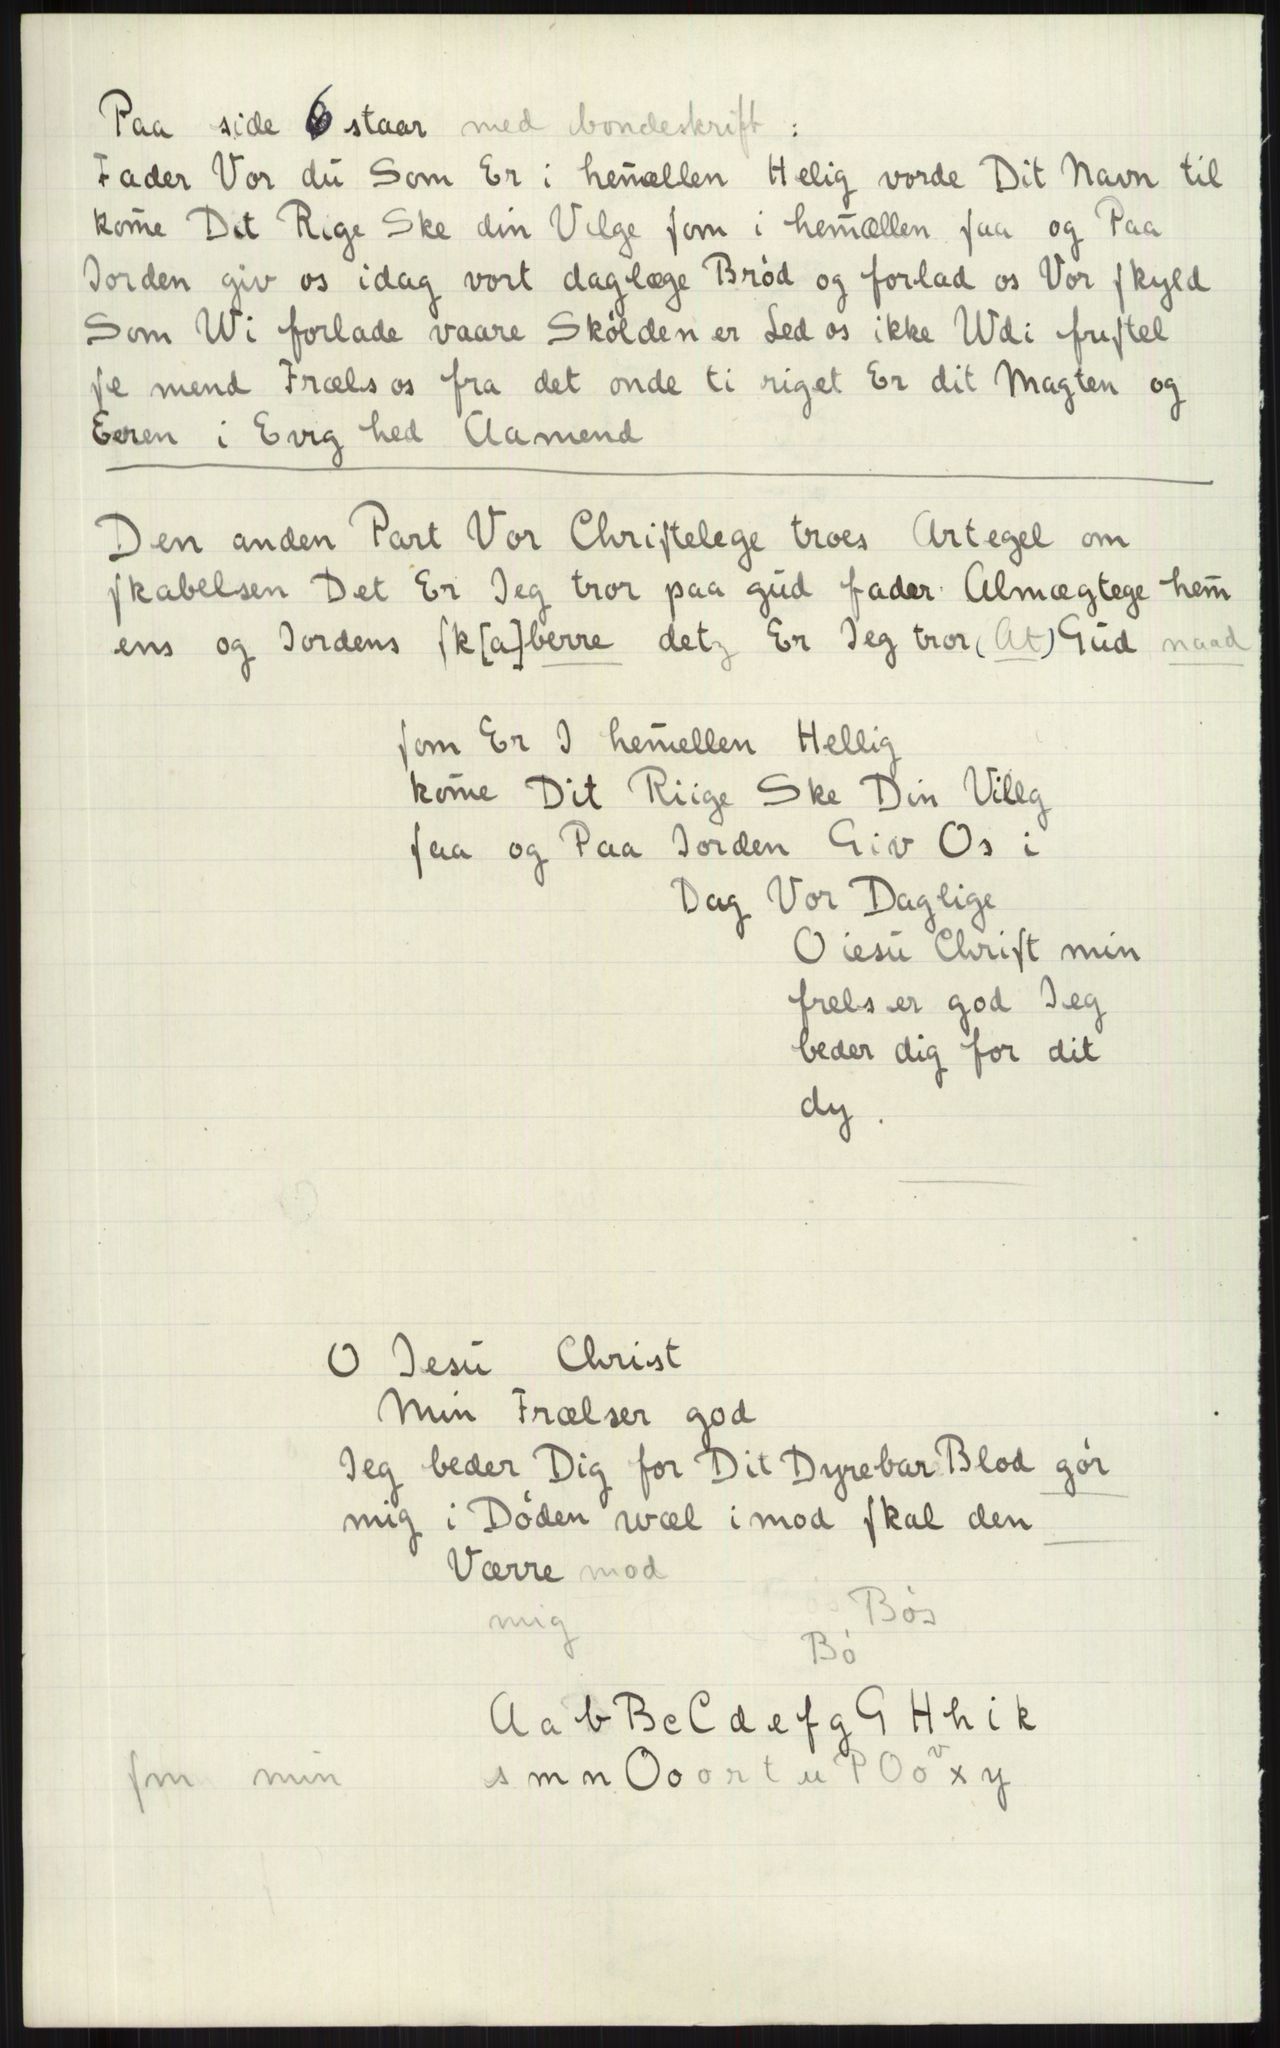 Paa side 6 staar med bondeskrift :
Fader Vor dū Som Er i hem̄ællen Helig vorde Dit Navn til
kom̄e Dit Rige Ske din Vilge ſom i hem̄ællen ſaa og Paa
Jorden giv os idag vort daglæge Bród og forlad os Vor ſkyld
Som Wi forlade vaare Skólden er Led os ikke Wdi friſtel
ſe mend Fræls os fra det onde ti riget Er dit Magten og
Eeren i Evig hed Aamend
Den anden Part Vor Chriſtelege troes Artegel om
ſkabelsen Det Er Jeg tror paa gūd fader Almægtege hem̄
ens og Jordens ſk[a]berre det Er Jeg tror (At) Gūd naad
ſom Er I hem̄ellen Hellig
kom̄e Dit Riige Ske Din Villg
ſaa og Paa Jorden Giv Os i
Dag Vor Daglige
O iesū Chriſt min
frels er god Jeg
beder dig for dit
dy .
O Jesū Christ
Min Frælser god
Jeg beder Dig for Dit Dyrebar Blod gór
mig i Dóden wæl imod ſkal den
Værre mod
mig Bós
Bó
A a b B c C d e f g G H h i k
ſm min s m n O o o r t u P O o v x y